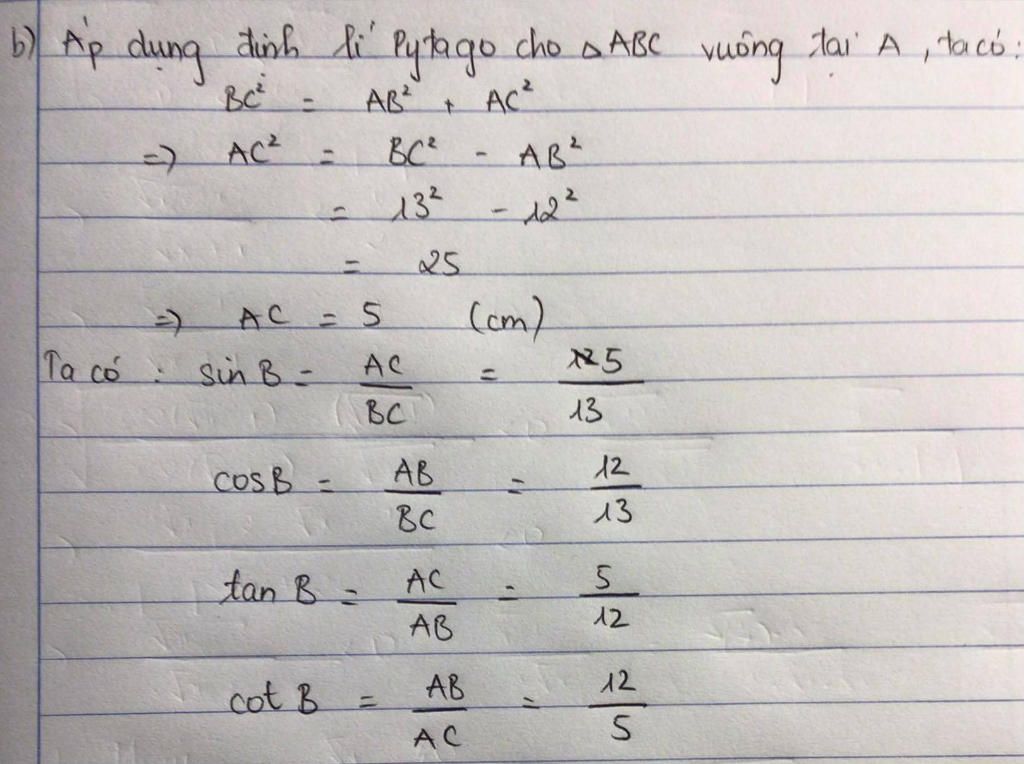 b) Áp dụng định lí Pytago cho △ABC vuông tại A, ta có:
BC² = AB² + AC²
=> AC² = BC² - AB²
= 13² - 12²
= 25
=> AC = 5 (cm)
Ta có : sin B = AC/BC = 5/13
cosB = AB/BC = 12/13
tan B = AC/AB = 5/12
cot B = AB/AC = 12/5